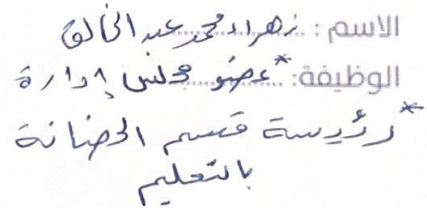 الاسم : زهراء محمد عبد الخالق
الوظيفة: *عضو مجلس إدارة
*رئيسة قسم الحضانة
بالتعليم